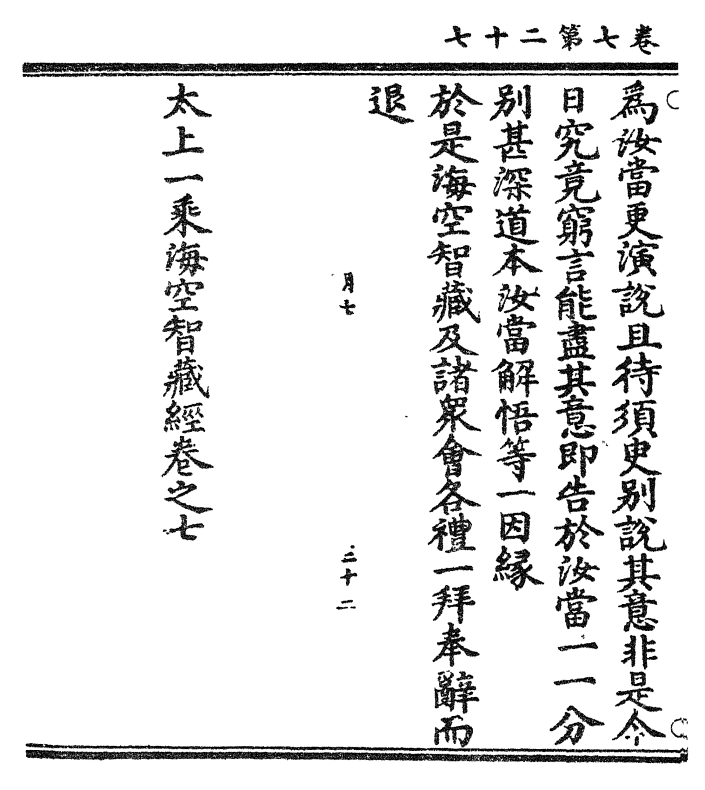 卷七第二十七
爲汝當更演說且待須史别說其意非是今
日究竟窮言能盡其意即告於汝當一一分
别甚深道本汝當解悟等一因緣
於是海空智藏及諸衆會各禮一拜奉辭而
退
月七
三十二
太上一乘海空智藏經卷之七